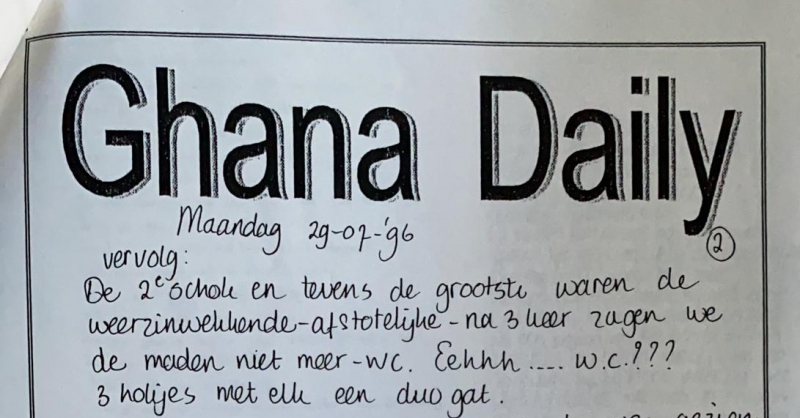 Ghana Daily
Maandag 29-07-'96
2
vervolg:
De 2e schok en tevens de grootste waren de
weerzinwekkende-afstotelijke-na 3 keer zagen we
de maden niet meer-wc. Eehhh .... w.c.???
3 hokjes met elk een duo gat.